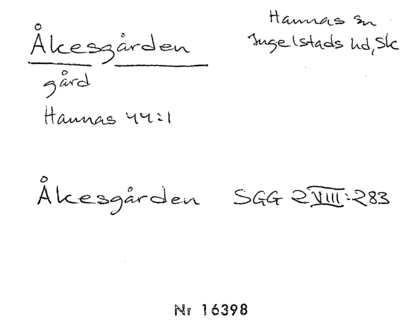 Åkesgården
Hannas sn
Ingelstads hd, Sk
gård
Hannas 44:1
Åkesgården SGG 2 VIII:283
Nr 16398